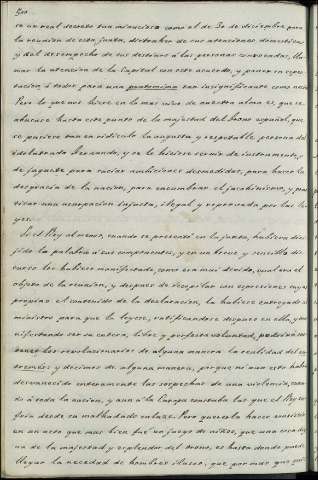 se un real decreto tan minucioso como el de 30 de diciembre para
la reunion de esta junta, distraher de sus atenciones domesticas
y del desempeño de sus destinos á las personas convocadas, lla-
mar la atencion de la Capital con este acuerdo, y poner en espec-
tacion á todos para una pantomima tan insignificante como necia.
Pero lo que nos hiere en lo mas vivo de nuestra alma es, que se
abusase hasta este punto de la majestad del trono español, que
se pusiese tan en ridículo la augusta y respetable persona del
idolatrado Fernando, y se le hiciese servir de instrumento,
de juguete para saciar ambiciones desmedidas, para hacer la
desgracia de la nacion, para encumbrar el jacobinismo, y
una usurpacion injusta, ilegal y reprovada por las le-
yes.
Si el Rey al menos, cuando se presentó en la junta, hubiera diri-
jido la palabra á sus componentes, y en un breve y sencillo dis-
curso les hubiese manifestado, como era muy devido, cual era el
objeto de la reunion, y despues de recopilar con espresiones suyas
propias el contenido de la declaracion, la hubiese entregado al
ministro para que la leyese, ratificandose despues en ella, y ma-
nifestando ser su entera, libre y perfecta voluntad,
los revolucionarios de alguna manera la realidad del
y decimos de alguna manera, porque ni aun esto habria
desvanecido enteramente las sospechas de una violencia, cuan-
do á toda la nacion, y aun á la Europa constaba las que el Rey su-
fria desde su malhadado enlace. Pero quererla hacer consistir
en un acto que mas bien fué un juego de niños, que una cosa dig-
na de la majestad y esplendor del trono, es hasta donde puede
llegar la necedad de hombres ilusos, que por mas que